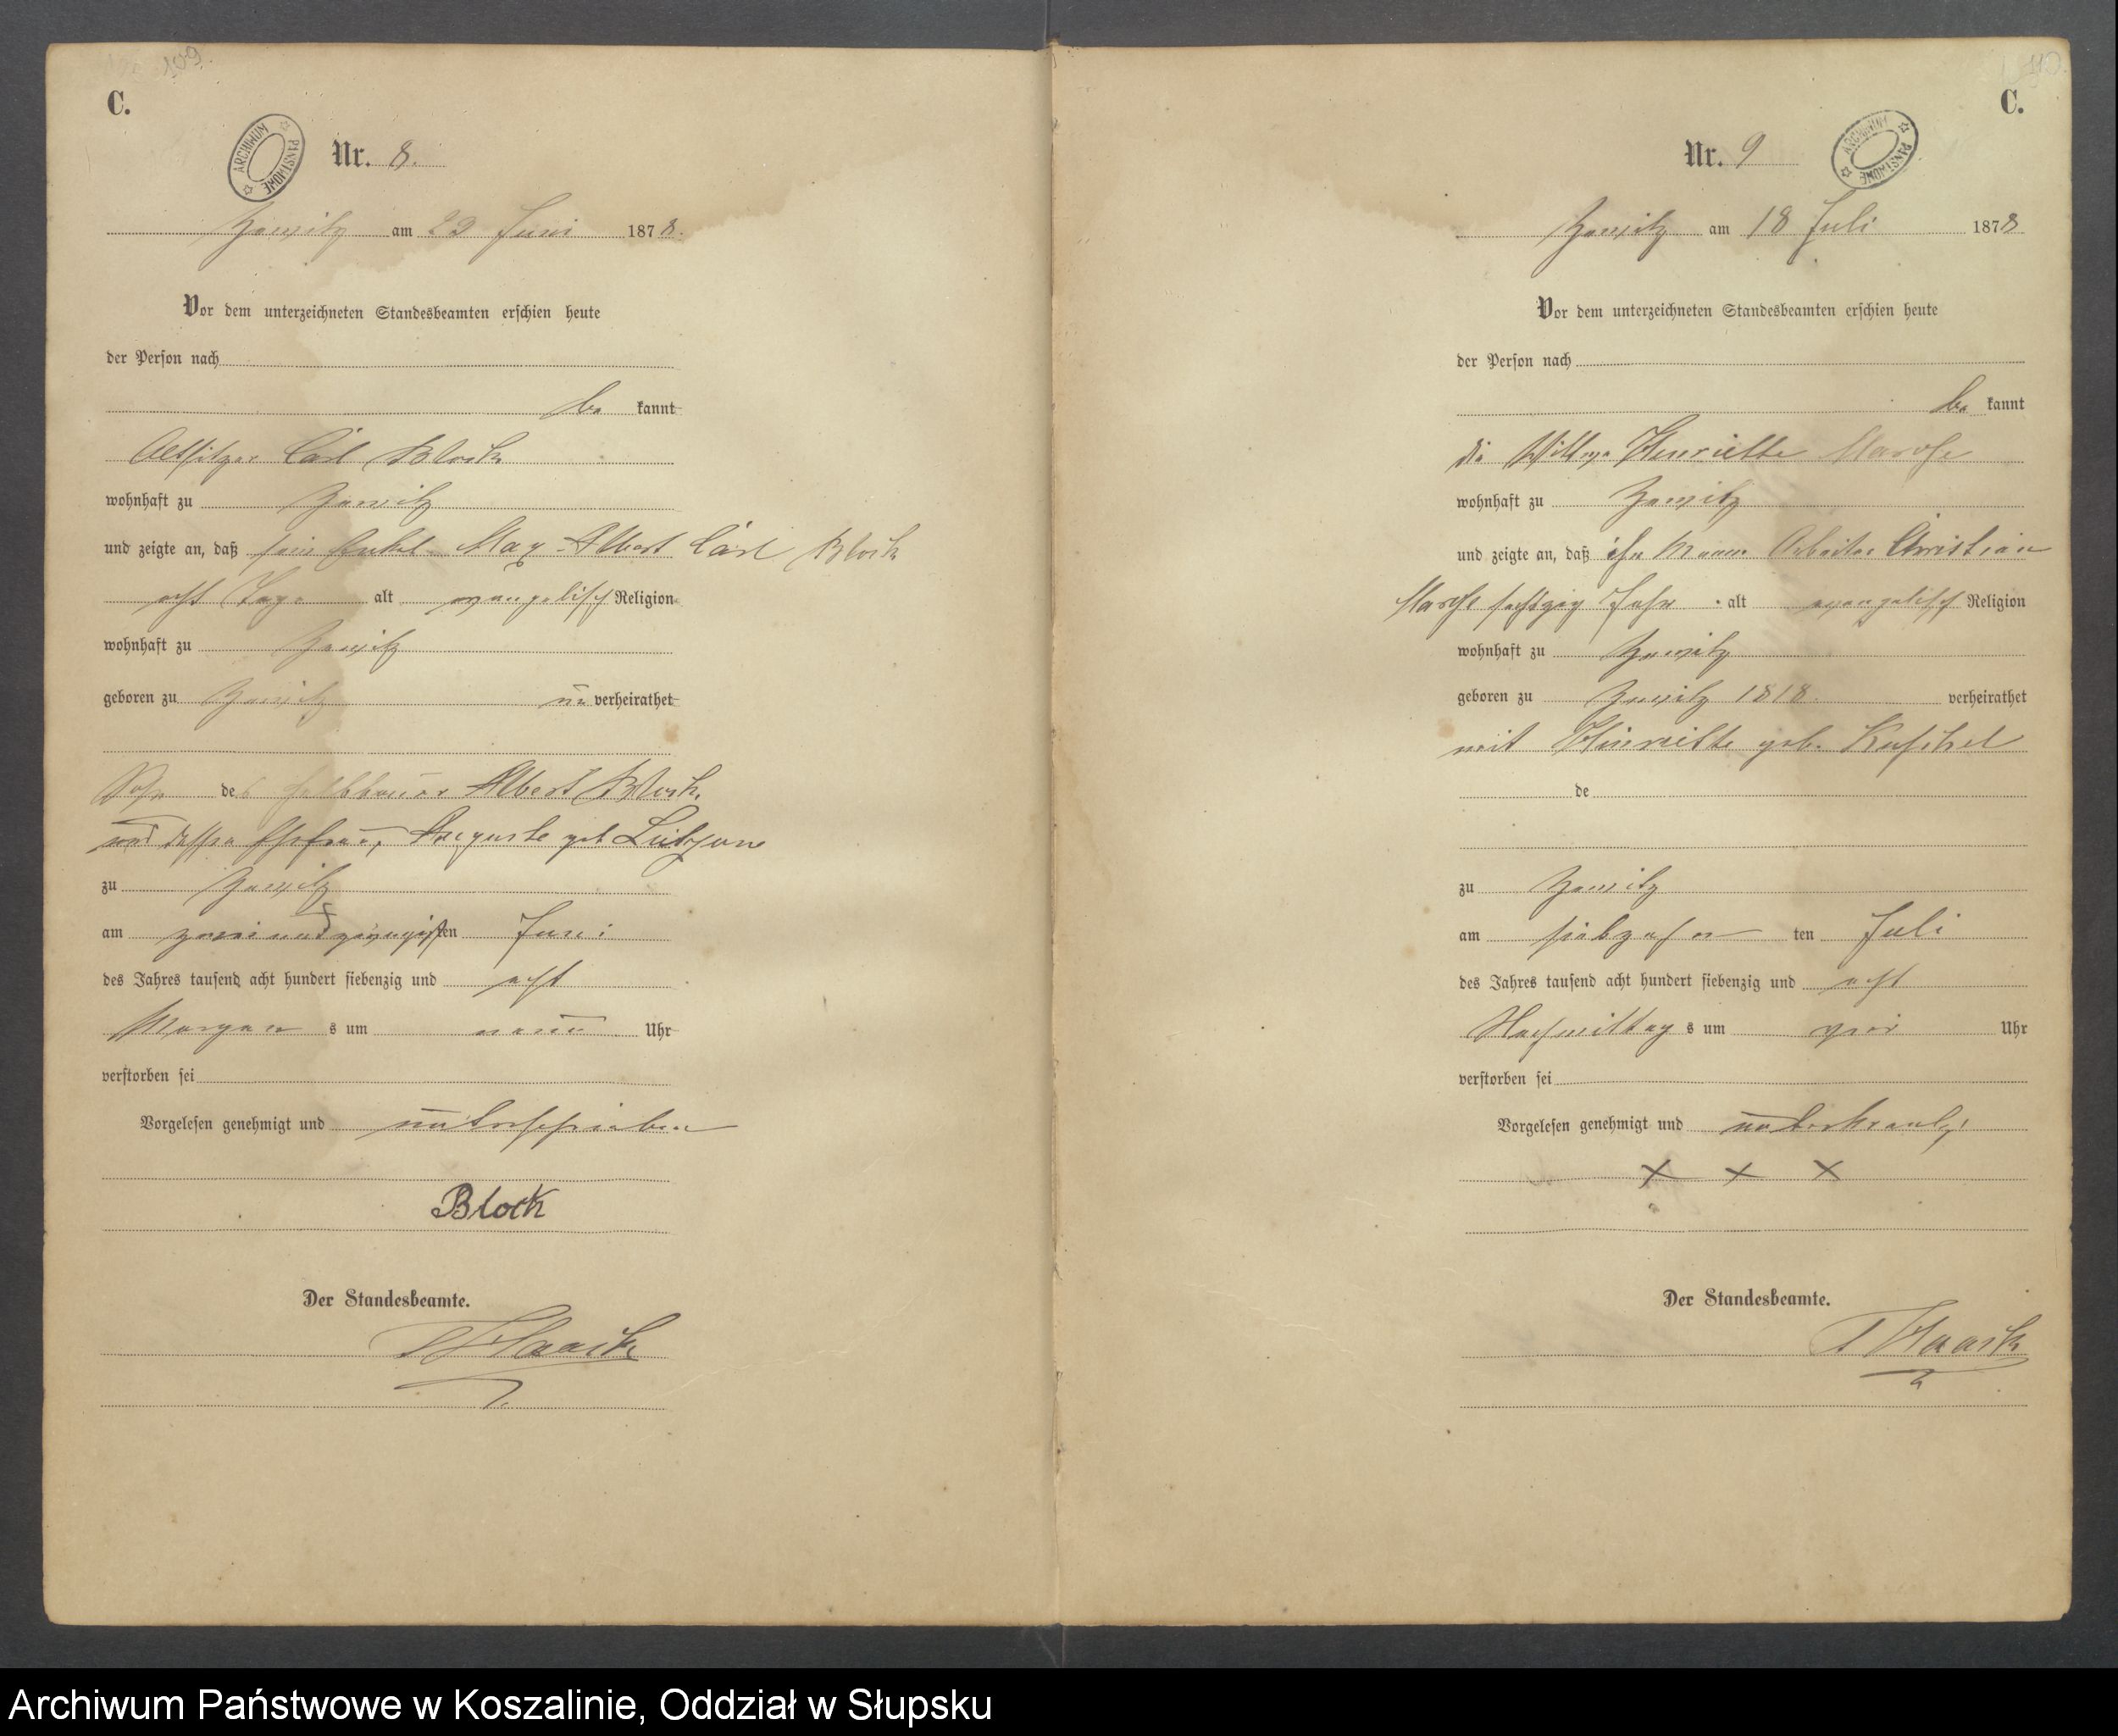 109.
C.
ARCHIWUM PAŃSTWOWE
Nr. 8.
am 23 Juni 1878.
Vor dem unterzeichneten Standesbeamten erschien heute
der Person nach
be kannt
Altsitzer Carl Block
wohnhaft zu
und zeigte an, daß sein Enkel Max Albert Carl Block
acht Tage alt evangelisch Religion
wohnhaft zu
geboren zu un verheirathet
Sohn des Halbbauer Albert Block
und dessen Ehefrau, Auguste geb
zu
am zwei und zwanzigsten Juni
des Jahres tausend acht hundert siebenzig und acht
Morgen s um neun Uhr
verstorben sei
Vorgelesen genehmigt und unterschrieben
Block
Der Standesbeamte.
110.
C.
ARCHIWUM PAŃSTWOWE
Nr. 9
am 18 Juli 1878
Vor dem unterzeichneten Standesbeamten erschien heute
der Person nach
be kannt
die Wittwe Henriette
wohnhaft zu
und zeigte an, daß ihr Mann Arbeiter Christian
sechszig Jahr alt evangelisch Religion
wohnhaft zu
geboren zu 1818 verheirathet
mit Henriette geb. Kuschel
de
zu
am siebzehn ten Juli
des Jahres tausend acht hundert siebenzig und acht
Nachmittag s um vier Uhr
verstorben sei
Vorgelesen genehmigt und unterkreuzt
x x x
Der Standesbeamte.
Archiwum Państwowe w Koszalinie, Oddział w Słupsku